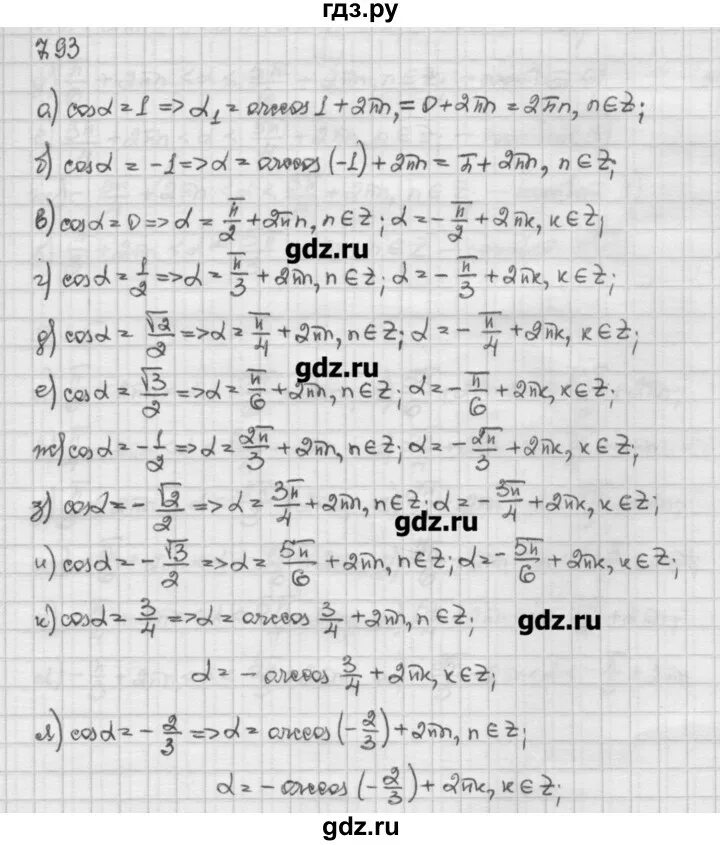 гдз.ру
7.93
а) cosα = 1 => α₁ = arccos 1 + 2πn, = 0 + 2πn = 2πn, n∈Z;
б) cosα = -1 => α = arccos (-1) + 2πn = π + 2πn, n∈Z;
в) cosα = 0 => α = π/2 + 2πn, n∈Z; α = -π/2 + 2πk, k∈Z;
gdz.ru
г) cosα = 1/2 => α = π/3 + 2πn, n∈Z; α = -π/3 + 2πk, k∈Z;
д) cosα = √2/2 => α = π/4 + 2πn, n∈Z; α = -π/4 + 2πk, k∈Z;
gdz.ru
е) cosα = √3/2 => α = π/6 + 2πn, n∈Z; α = -π/6 + 2πk, k∈Z;
ж) cosα = -1/2 => α = 2π/3 + 2πn, n∈Z; α = -2π/3 + 2πk, k∈Z;
з) cosα = -√2/2 => α = 3π/4 + 2πn, n∈Z; α = -3π/4 + 2πk, k∈Z;
gdz.ru
и) cosα = -√3/2 => α = 5π/6 + 2πn, n∈Z; α = -5π/6 + 2πk, k∈Z;
к) cosα = 3/4 => α = arccos 3/4 + 2πn, n∈Z;
gdz.ru
α = -arccos 3/4 + 2πk, k∈Z;
л) cosα = -2/3 => α = arccos (-2/3) + 2πn, n∈Z;
α = -arccos (-2/3) + 2πk, k∈Z;
gdz.ru